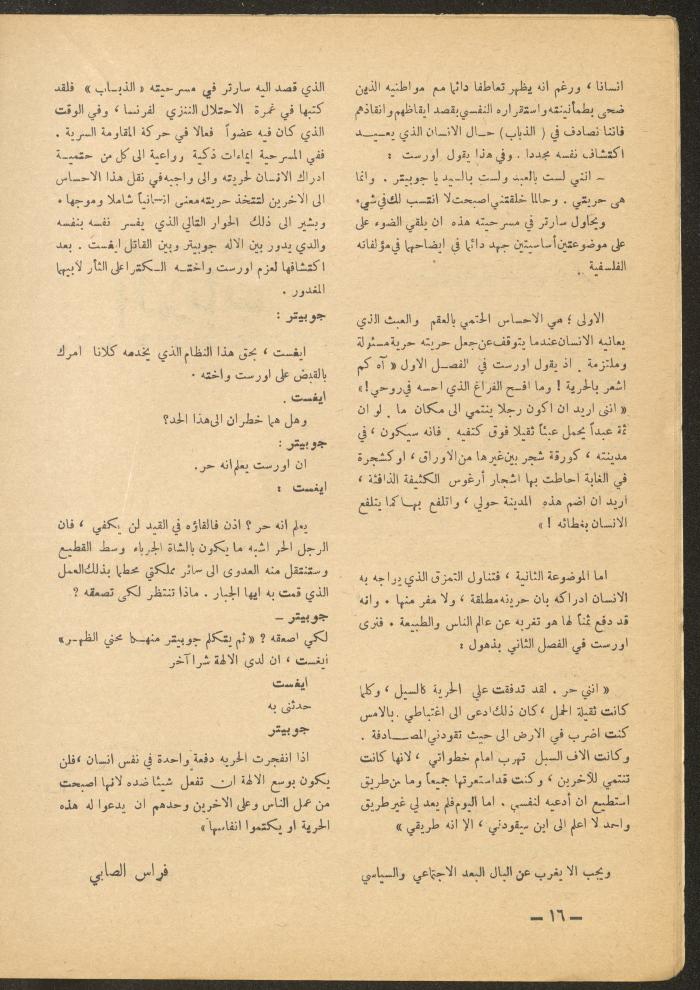 انسانا ، ورغم انه يظهر تعاطفا دائما مع مواطنيه الذين
ضحى بطمأنينته واستقراره النفسي بقصد ايقاظهم وانقاذهم
فاننا نصادف في ( الذباب ) حال الانسان الذي يعيد
اكتشاف نفسه مجددا . وفي هذا يقول اورست :
ـ انني لست بالعبد ولست بالسيد يا جوبيتر . وانما
هى حريتي . وحالما خلقتني اصبحت لا انتسب لك في شيء
ويحاول سارتر في مسرحيته هذه ان يلقي الضوء على
على موضوعتين أساسيتين جهد دائما في ايضاحهما في مؤلفاته
الفلسفية .
الاولى ؛ هي الاحساس الحتمي بالعقم والعبث الذي
يعانيه الانسان عندما يتوقف عن جعل حريته حرية مسئولة
وملتزمة . اذ يقول اورست في الفصل الاول « آه كم
اشعر بالحرية ! وما افسح الفراغ الذي احسه في روحي ! »
« انني اريد ان اكون رجلا ينتمي الى مكان ما . لو ان
ثمة عبداً يحمل عبئاً ثقيلا فوق كتفيه . فانه سيكون ، في
مدينته ، كورقة شجر بين غيرها من الاوراق ، او كشجرة
في الغابة احاطت بها اشجار أرغوس الكثيفة الدافئة ،
اريد ان اضم هذه المدينة حولي ، واتلفع بها كما يتلفع
الانسان بغطائه ! »
اما الموضوعة الثانية ، فتناول التمزق الذي يراجه به
الانسان ادراكه بان حريته مطلقة ، ولا مفر منها . وانه
قد دفع ثمناً لها هو تغربه عن عالم الناس والطبيعة . فنرى
اورست في الفصل الثاني بذهول :
« انني حر . لقد تدفقت علي الحرية كالسيل ، وكلما
كانت ثقيلة الحمل ، كان ذلك ادعى الى اغتباطي . بالامس
كنت اضرب في الارض الى حيث تقودني المصادفة .
وكانت الاف السبل تهرب امام خطواتي ، لانها كانت
تنتمي للآخرين ، وكنت قد استعرتها جميعاً وما من طريق
استطيع ان أدعيه لنفسي . اما اليوم فلم يعد لي غير طريق
واحد لا اعلم الى اين سيقودني ، الا انه طريقي »
ويجب الا يغرب عن البال البعد الاجتماعي والسياسي
الذي قصد اليه سارتر في مسرحيته « الذباب » فلقد
كتبها في غمرة الاحتلال النازي لفرنسا ، وفي الوقت
الذي كان فيه عضواً فعالا في حركة المقاومة السرية .
ففي المسرحية ايماءات ذكية وواعية الى كل من حتمية
ادراك الانسان لحريته والى واجبه في نقل هذا الاحساس
الى الاخرين لتتخذ حريته معنى انسانياً شاملا وموجها .
ويشير الى ذلك الحوار التالي الذي يفسر نفسه بنفسه
والذي يدور بين الاله جوبيتر وبين القاتل ايغست . بعد
اكتشافها لعزم اورست واخته الكترا على الثأر لابيهما
المغدور .
جوبيتر :
ايغست ، بحق هذا النظام الذي يخدمه كلانا امرك
بالقبض على اورست واخته .
ايغست .
وهل هما خطران الى هذا الحد؟
جوبيتر :
ان اورست يعلم انه حر .
ايغست :
يعلم انه حر ؟ اذن فالقاؤه في القيد لن يكفي ، فان
الرجل الحر اشبه ما يكون بالشاة الجرباء وسط القطيع
وستنتقل منه العدوى الى سائر مملكتي محطما بذلك العمل
الذي قمت به ايها الجبار . ماذا تنتظر لكى تصعقه ؟
جوبيتر ـ
لكي اصعقه ؟ « ثم يتكلم جوبيتر منهكا محني الظهر »
أيغست ، ان لدى الالهة شرا آخر
ايغست
حدثنى به
جوبيتر
اذا انفجرت الحريه دفعة واحدة في نفس انسان ، فلن
يكون بوسع الالهة ان تفعل شيئا ضده لانها اصبحت
من عمل الناس وعلى الاخرين وحدهم ان يدعوا له هذه
الحرية او يكتموا انفاسها »
فراس الصابي
ـ ١٦ ـ